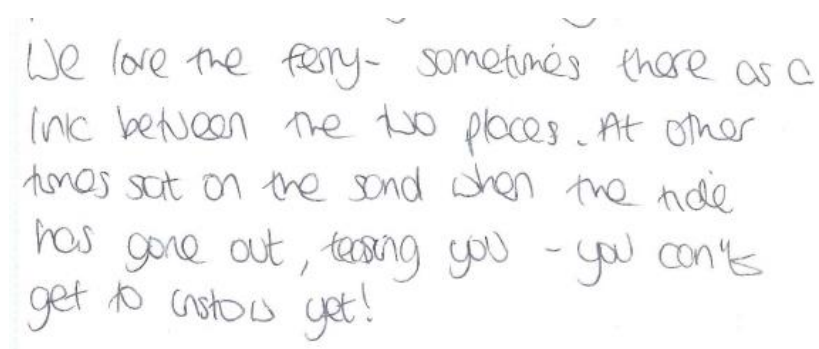 We love the ferry- sometimes there as a
link between the two places. At other
times sat on the sand when the tide
has gone out, teasing you - you can't
get to instow yet!